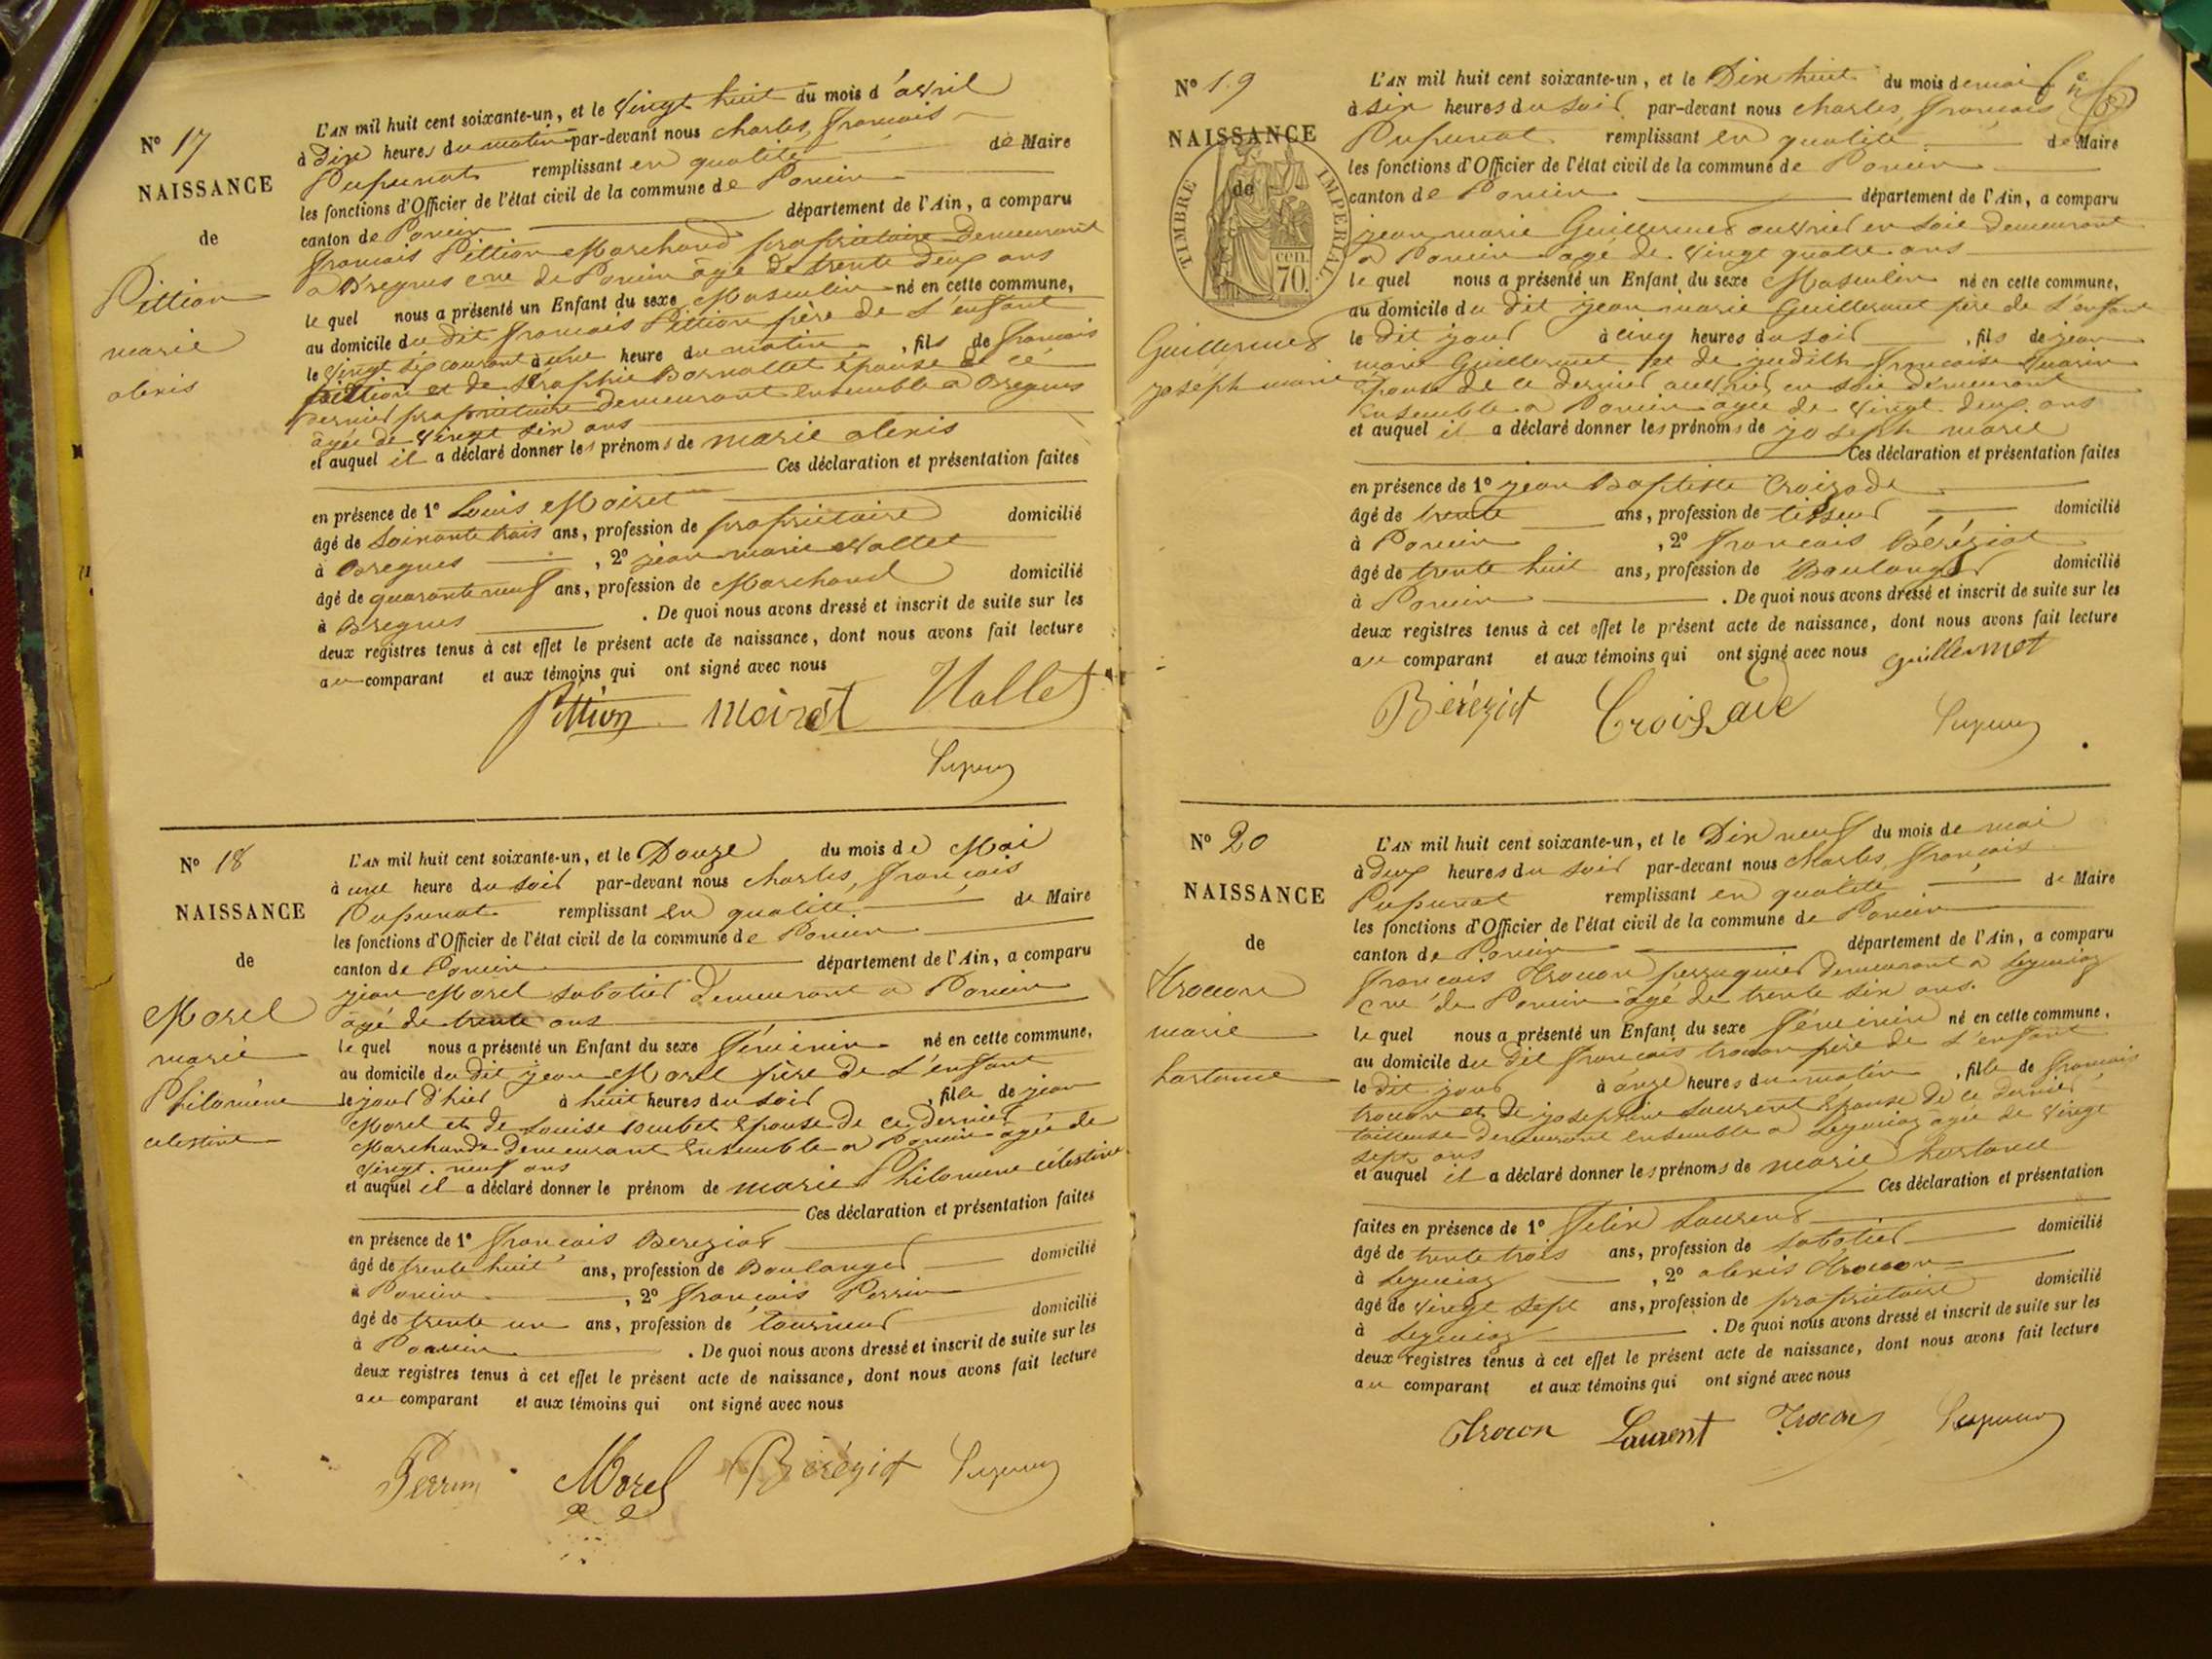 N° 17
NAISSANCE
de
Pittion
marie
alexis
L'AN mil huit cent soixante-un, et le Vingt huit du mois d'avril
à Dix heures du matin par-devant nous Charles, françois
Pupunat remplissant en qualité de Maire
les fonctions d'Officier de l'état civil de la commune de Poncin
canton de Poncin département de l'Ain, a comparu
françois Pittion Marchand propriétaire Demeurant
a Bregnes cne de Poncin âgé de trente deux ans
le quel nous a présenté un Enfant du sexe Masculin né en cette commune,
au domicile du dit françois Pittion père de L'enfant
le Vingt sep courant à une heure du matin, fils de françois
Pittion et de Séraphie Bornallet épouse de ce
Dernier propriétaire Demeurant Ensemble a Bregnes
âgée de Vingt six ans
et auquel il a déclaré donner les prénoms de marie alexis
Ces déclaration et présentation faites
en présence de 1° Louis Moiret
âgé de Soixante trois ans, profession de propriétaire domicilié
à Bregnes, 2° jean marie Vallet
âgé de quarante neuf ans, profession de Marchand domicilié
à Bregnes. De quoi nous avons dressé et inscrit de suite sur les
deux registres tenus à cet effet le présent acte de naissance, dont nous avons fait lecture
au comparant et aux témoins qui ont signé avec nous
Pittion Moiret Vallet
Pupunat
N° 18
NAISSANCE
de
Morel
marie
Philomène
celestine
L'AN mil huit cent soixante-un, et le Douze du mois de Mai
à une heure du soir par-devant nous Charles, françois
Pupunat remplissant en qualité de Maire
les fonctions d'Officier de l'état civil de la commune de Poncin
canton de Poncin département de l'Ain, a comparu
jean Morel sabotier Demeurant a Poncin
âgé de trente ans
le quel nous a présenté un Enfant du sexe féminin né en cette commune,
au domicile du dit jean Morel père De L'enfant
le jour d'hier à huit heures du soir, fille de jean
Morel et de Louise Epouse De ce Dernier
Marchande Demeurant Ensemble a Poncin âgée de
Vingt. neuf ans
et auquel il a déclaré donner le prénom de marie Philomene célestine
Ces déclaration et présentation faites
en présence de 1° françois Bereziat
âgé de trente huit ans, profession de Boulanger domicilié
à Poncin, 2° françois Perrin
âgé de trente un ans, profession de tourneur domicilié
à Poncin. De quoi nous avons dressé et inscrit de suite sur les
deux registres tenus à cet effet le présent acte de naissance, dont nous avons fait lecture
au comparant et aux témoins qui ont signé avec nous
Perrin Morel Béréziat Pupunat
N° 19
NAISSANCE
de
TIMBRE IMPERIAL
cen. 70.
Guillermet
joseph marie
L'AN mil huit cent soixante-un, et le Dix huit du mois de mai
à six heures du soir par-devant nous Charles, françois
Pupunat remplissant en qualité de Maire
les fonctions d'Officier de l'état civil de la commune de Poncin
canton de Poncin département de l'Ain, a comparu
jean marie Guillermet ouvrier en soie Demeurant
a Poncin âgé de Vingt quatre ans
le quel nous a présenté un Enfant du sexe Masculin né en cette commune,
au domicile du dit jean marie Guillermet père de L'enfant
le dit jour à cinq heures du soir, fils de jean
marie Guillermet et de judith françoise
Epouse de ce dernier ouvrier en soie Demeurant
Ensemble a Poncin âgée de Vingt. deux. ans
et auquel il a déclaré donner les prénoms de joseph marie
Ces déclaration et présentation faites
en présence de 1° jean Baptiste Croizade
âgé de trente ans, profession de tisseur domicilié
à Poncin, 2° françois Béréziat
âgé de trente huit ans, profession de Boulanger domicilié
à Poncin. De quoi nous avons dressé et inscrit de suite sur les
deux registres tenus à cet effet le présent acte de naissance, dont nous avons fait lecture
au comparant et aux témoins qui ont signé avec nous Guillermet
Béréziat Croissade Pupunat
N° 20
NAISSANCE
de
Trocon
marie
hortance
L'AN mil huit cent soixante-un, et le Dix neuf du mois de mai
à deux heures du soir par-devant nous Charles, françois
Pupunat remplissant en qualité de Maire
les fonctions d'Officier de l'état civil de la commune de Poncin
canton de Poncin département de l'Ain, a comparu
françois Trocon perruquier demeurant a Leymiaz
cne de Poncin âgé de trente six ans.
le quel nous a présenté un Enfant du sexe féminin né en cette commune,
au domicile du dit françois trocon père de L'enfant
le dit jour à onze heures du matin, fille de françois
trocon et De josephine Laurent Epouse De ce dernier
tailleuse Demeurant Ensemble a Leymiaz âgée de Vingt
sept ans
et auquel il a déclaré donner les prénoms de marie hortance
Ces déclaration et présentation
faites en présence de 1° félix Laurent
âgé de trente trois ans, profession de sabotier domicilié
à Leymiaz, 2° alexis Trocon
âgé de vingt sept ans, profession de propriétaire domicilié
à Leymiaz. De quoi nous avons dressé et inscrit de suite sur les
deux registres tenus à cet effet le présent acte de naissance, dont nous avons fait lecture
au comparant et aux témoins qui ont signé avec nous
Trocon Laurent Trocon Pupunat